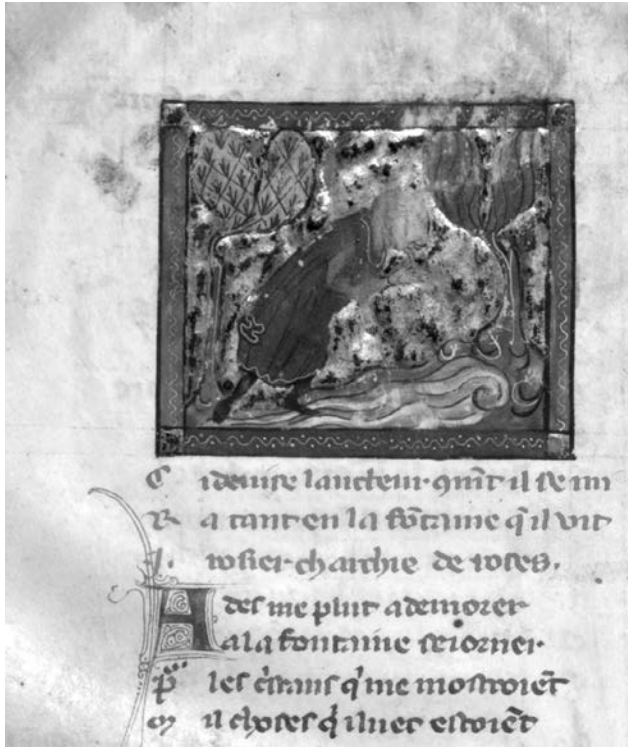 C i deuise laucteur qñt il se mi
R a tant en la fõtaine q̓ il vit
.I. rosier charchie de roses.
A des me plut a demorer
A la fontaine seiorner
P̃ les c̓staus q̓ me mostroiẽt
M il choses q̓ iluec estoiẽt